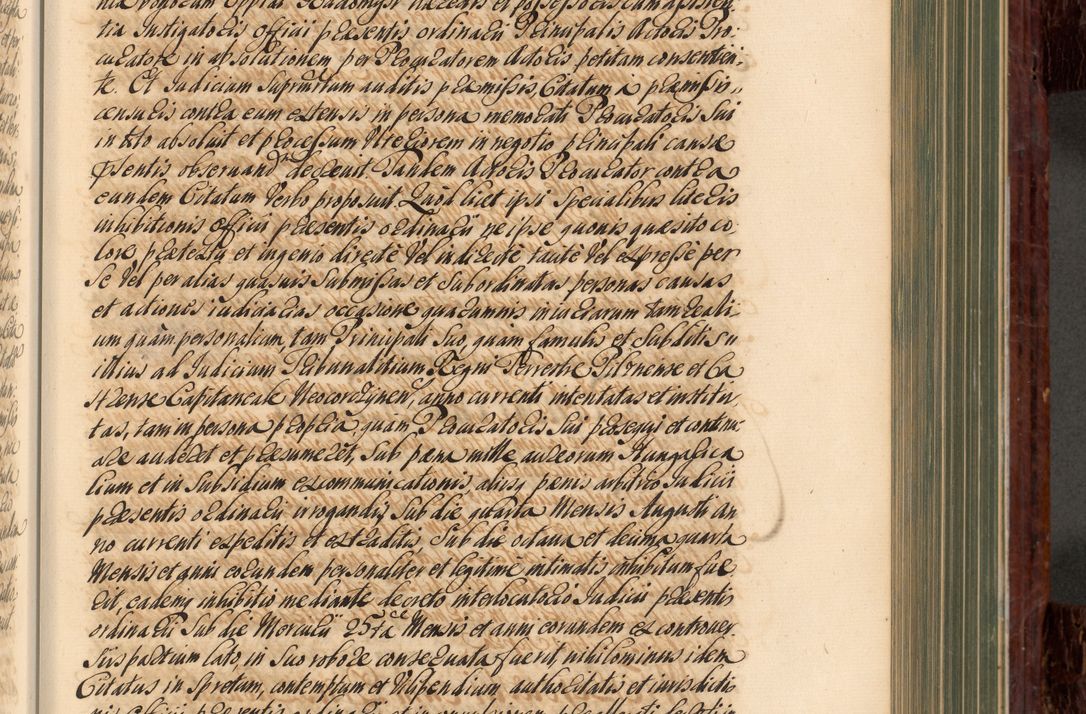 nia bonorum Oppidi Radomysl hæredis et possessoris cum assisten
tia Instigatoris officii præsentis ordinarii Principalis Actoris Pro:
curatore in absolutionem per Procuratorem Actoris petitam consentien:
te. Et Judicium Suprattum auditis præmissis, Citatum à præmissis
censuris contra eum extensis in persona memorati Procuratoris sui
in tto absolvit et processum ulteriorem in negotio principali causæ
pñsentis observand: decrevit. Tandem Actoris Procurator contra
eundem Citatum verbo proposuit. Quod licet ipsi specialibus literis
inhibitionis officii præsentis ordinarii ne ipse quovis quæsito co
lore prætextu et ingenio directè vel indirectè tacitè vel expressè per
se vel per alias quasvis submissas et subordinatas personas causas
et actiones iudiciarias occasione quarumvis iniuriarum tam reali
um quàm personalium tam Principali suo, quàm famulis et subditis
illius ad Judicium Tribunalitium Regni Terrestre Pilznense et Ca
strense Capitaneale Neocorczynen: anno currenti intentatas et institu
tas, tam in persona propria quàm Procuratoris sui prosequi et contin
are auderet et præsumeret, sub pæna mille aureorum Hungarica
lium et in subsidium excommunicationis aliisq pænis arbitrio Judicii
præsentis ordinarii irrogandis sub die quarta Mensis Augusti an
no currenti expeditis et extraditis, sub die octava et decima quarta
Mensis et anni eorundem personaliter et legitimè intimatis inhibitum fue
rit, eademq inhibitio mediante decreto interlocutorio Judicii præsentis
ordinarii sub die Mercurii 25ta Mensis et anni eorundem ex controver
siis partium lato, in suo robore conservata fuerit, nihilominus idem
Citatus in spretum, contemptum et vilipendium authoritatis et iurisdictio
nis officii præsentis ordinarii et in